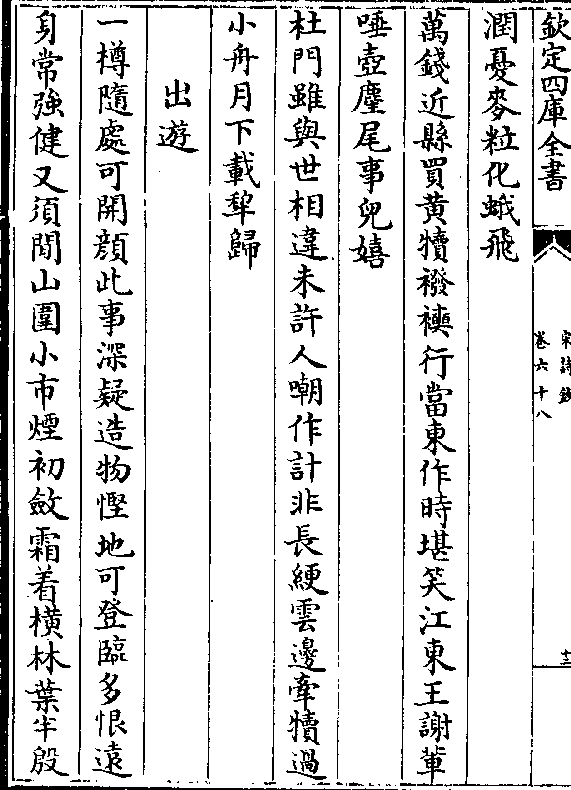 欽定四庫全書
宋詩鈔
卷六十八
十三
潤憂麥粒化蛾飛
萬錢近縣買黄犢襏襫行當東作時堪笑江東王謝軰
唾壺麈尾事兒嬉
杜門雖與世相違未許人嘲作計非長綆雲邊牽犢過
小舟月下載犂歸
出遊
一樽隨處可開顔此事深疑造物慳地可登臨多恨遠
身常強健又須閒山圍小市煙初斂霜着横林葉半殷